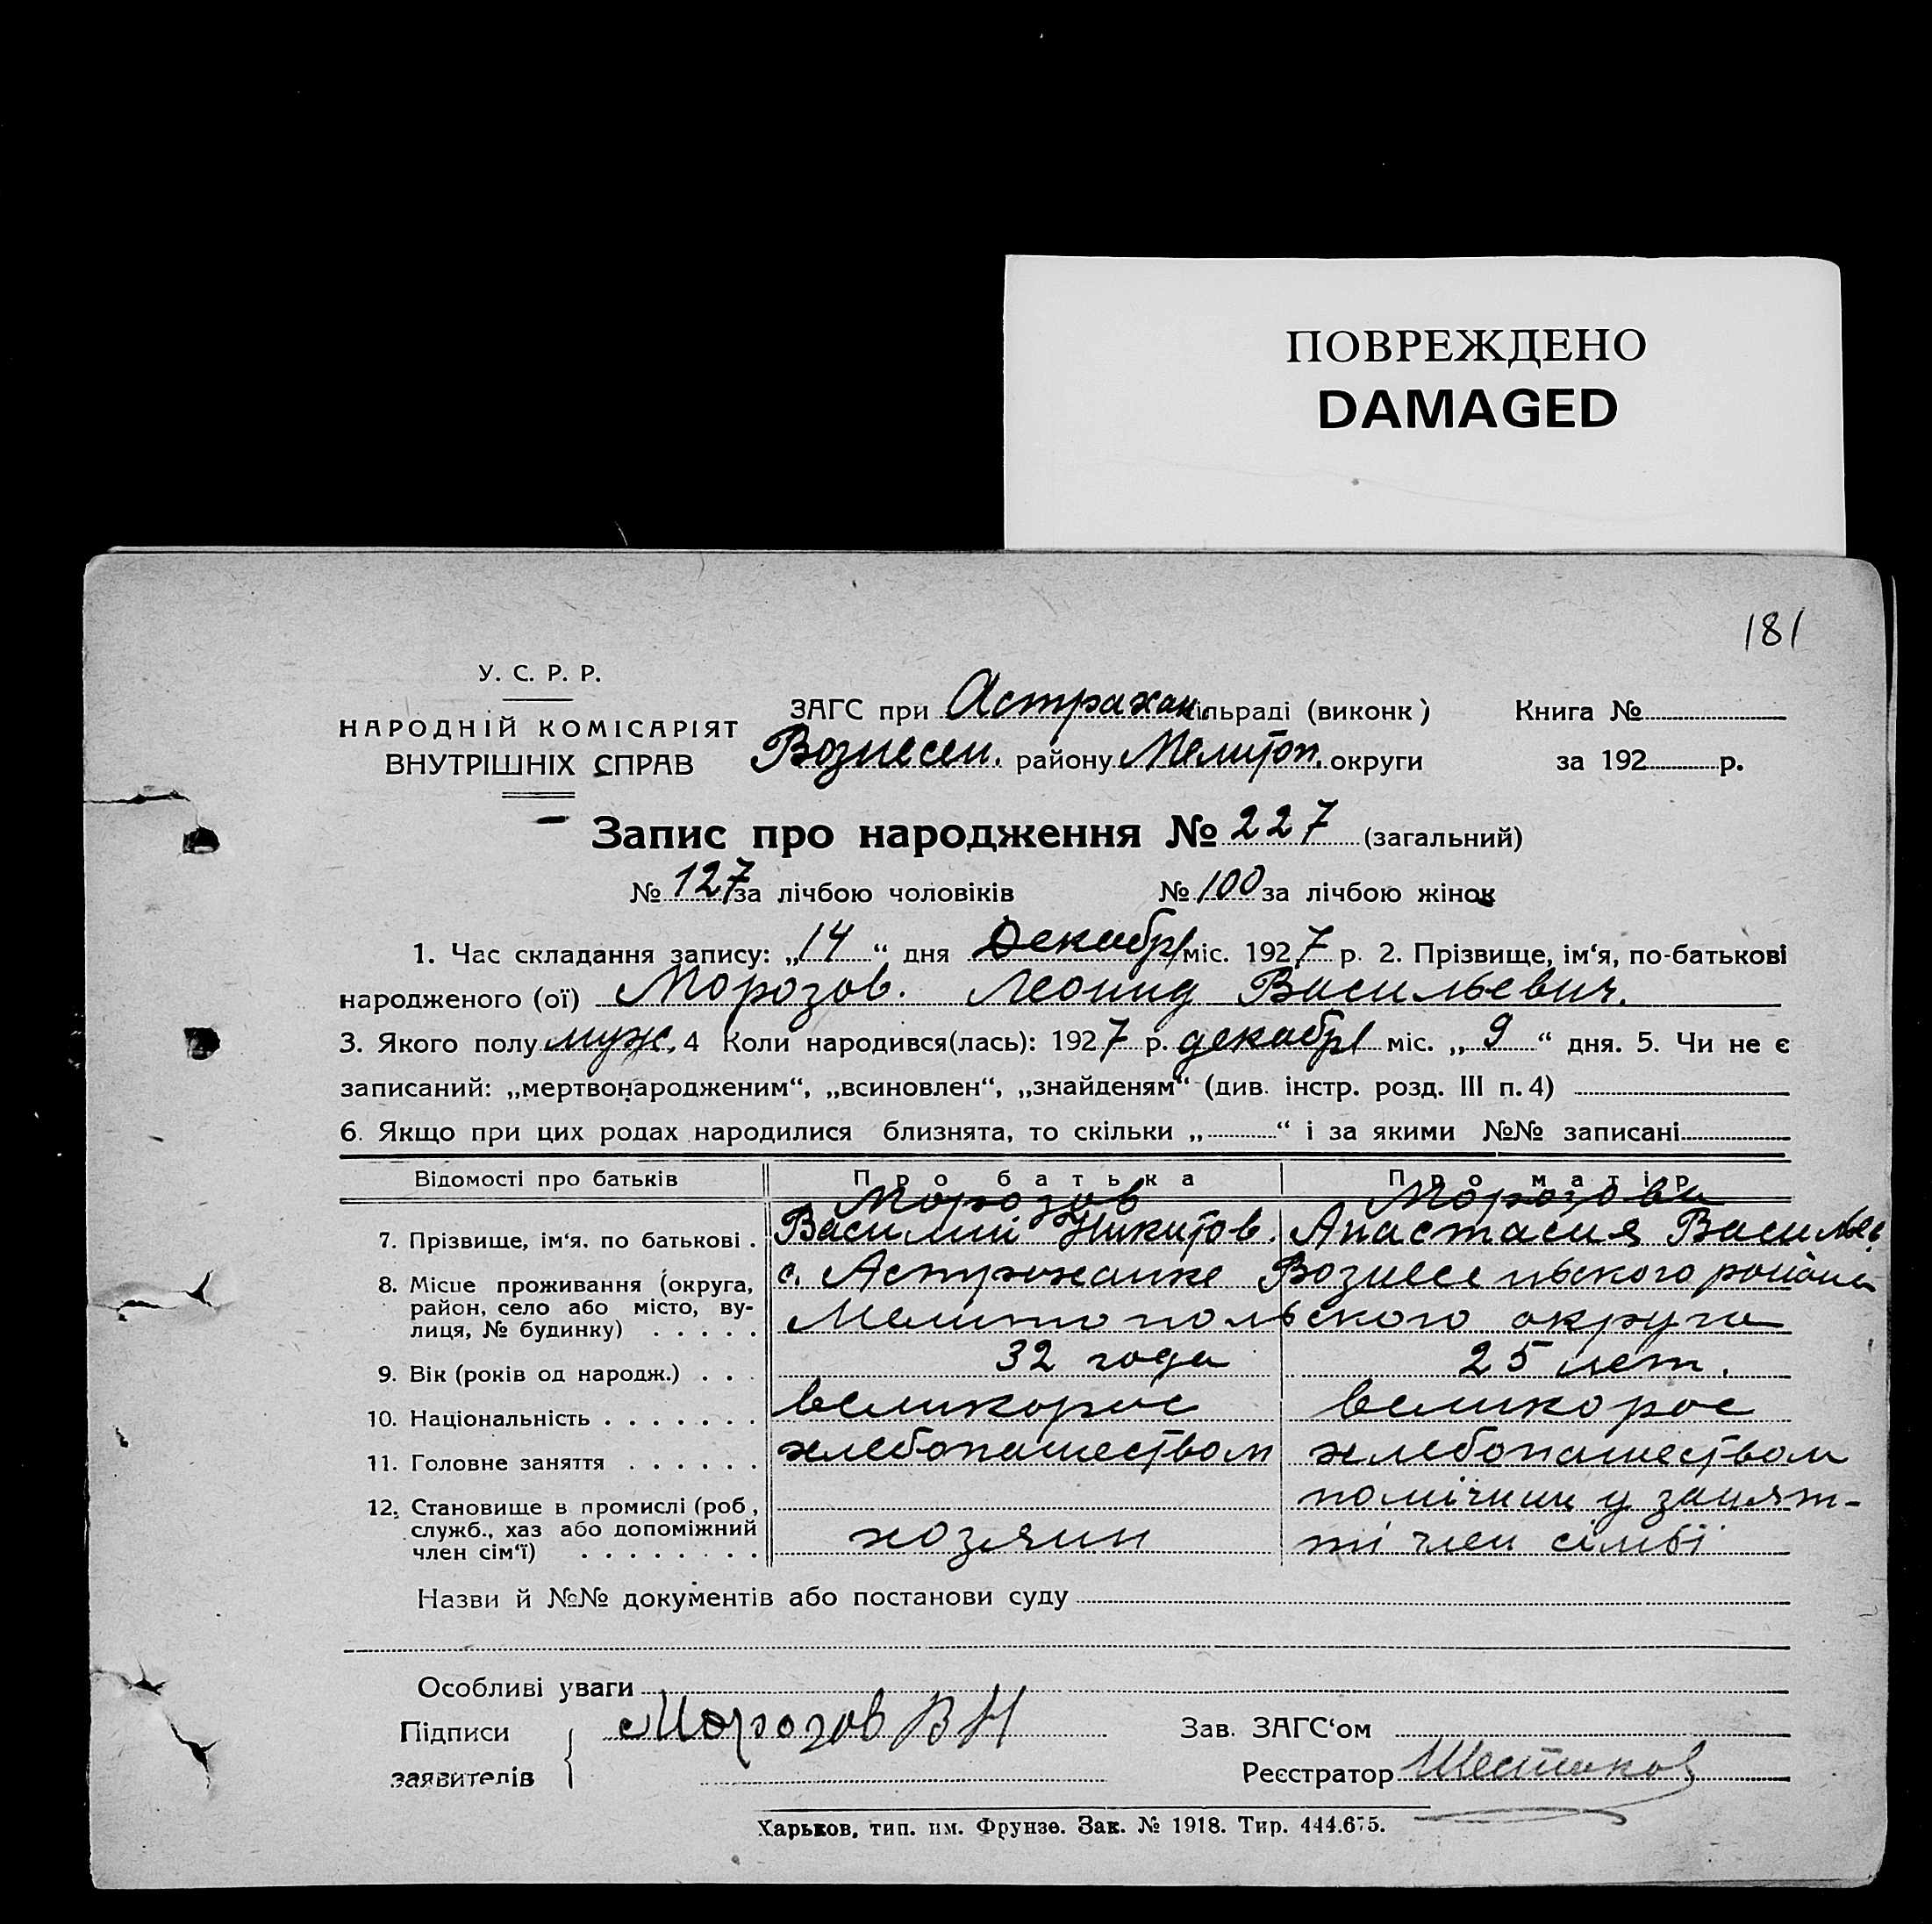 ПОВРЕЖДЕНО
DAMAGED
181
У. С. Р. Р.
НАРОДНІЙ КОМІСАРІЯТ
ВНУТРІШНІХ СПРАВ
ЗАГС при Астрахан. сільраді (виконк)
Книга №
Вознесен. району Мелитоп. округи
за 192 р.
Запис про народження № 227 (загальний)
№ 127 за лічбою чоловіків № 100 за лічбою жінок
1. Час складання запису: „14“ дня Декабря міс. 1927 р. 2. Прізвище, ім‘я, по-батькові
народженого (ої) Морозов. Леонид Васильевич.
3. Якого полу муж. 4 Коли народився(лась): 1927 р. декабря міс. „9“ дня. 5. Чи не є
записаний: „мертвонародженим“, „всиновлен“, „знайденям“ (див. інстр. розд. III п. 4)
6. Якщо при цих родах народилися близнята, то скільки „ “ і за якими №№ записані
Відомості про батьків Про батька Про матір
Морозов Морозова
7. Прізвище, ім‘я. по батькові . Василий Никитов. Анастасия Василье.
8. Місце проживання (округа, с. Астраханке Вознесеньского района
район, село або місто, ву-
лиця, № будинку) . . . . . Мелитопольского округа
9. Вік (років од народж.) . . . 32 года 25 лет.
10. Національність . . . . . . . великорос великорос
11. Головне заняття . . . . . . хлебопашеством хлебопашеством
12. Становище в промислі (роб, помічник у занят-
служб., хаз або допоміжний
член сім‘ї) . . . . . . . . хозяин ті член сімьї
Назви й №№ документів або постанови суду
Особливі уваги
Підписи Морозов В Н
Зав. ЗАГС‘ом
заявителів
Реєстратор Шестаков
Харьков, тип. им. Фрунзе. Зак. № 1918. Тир. 444.675.